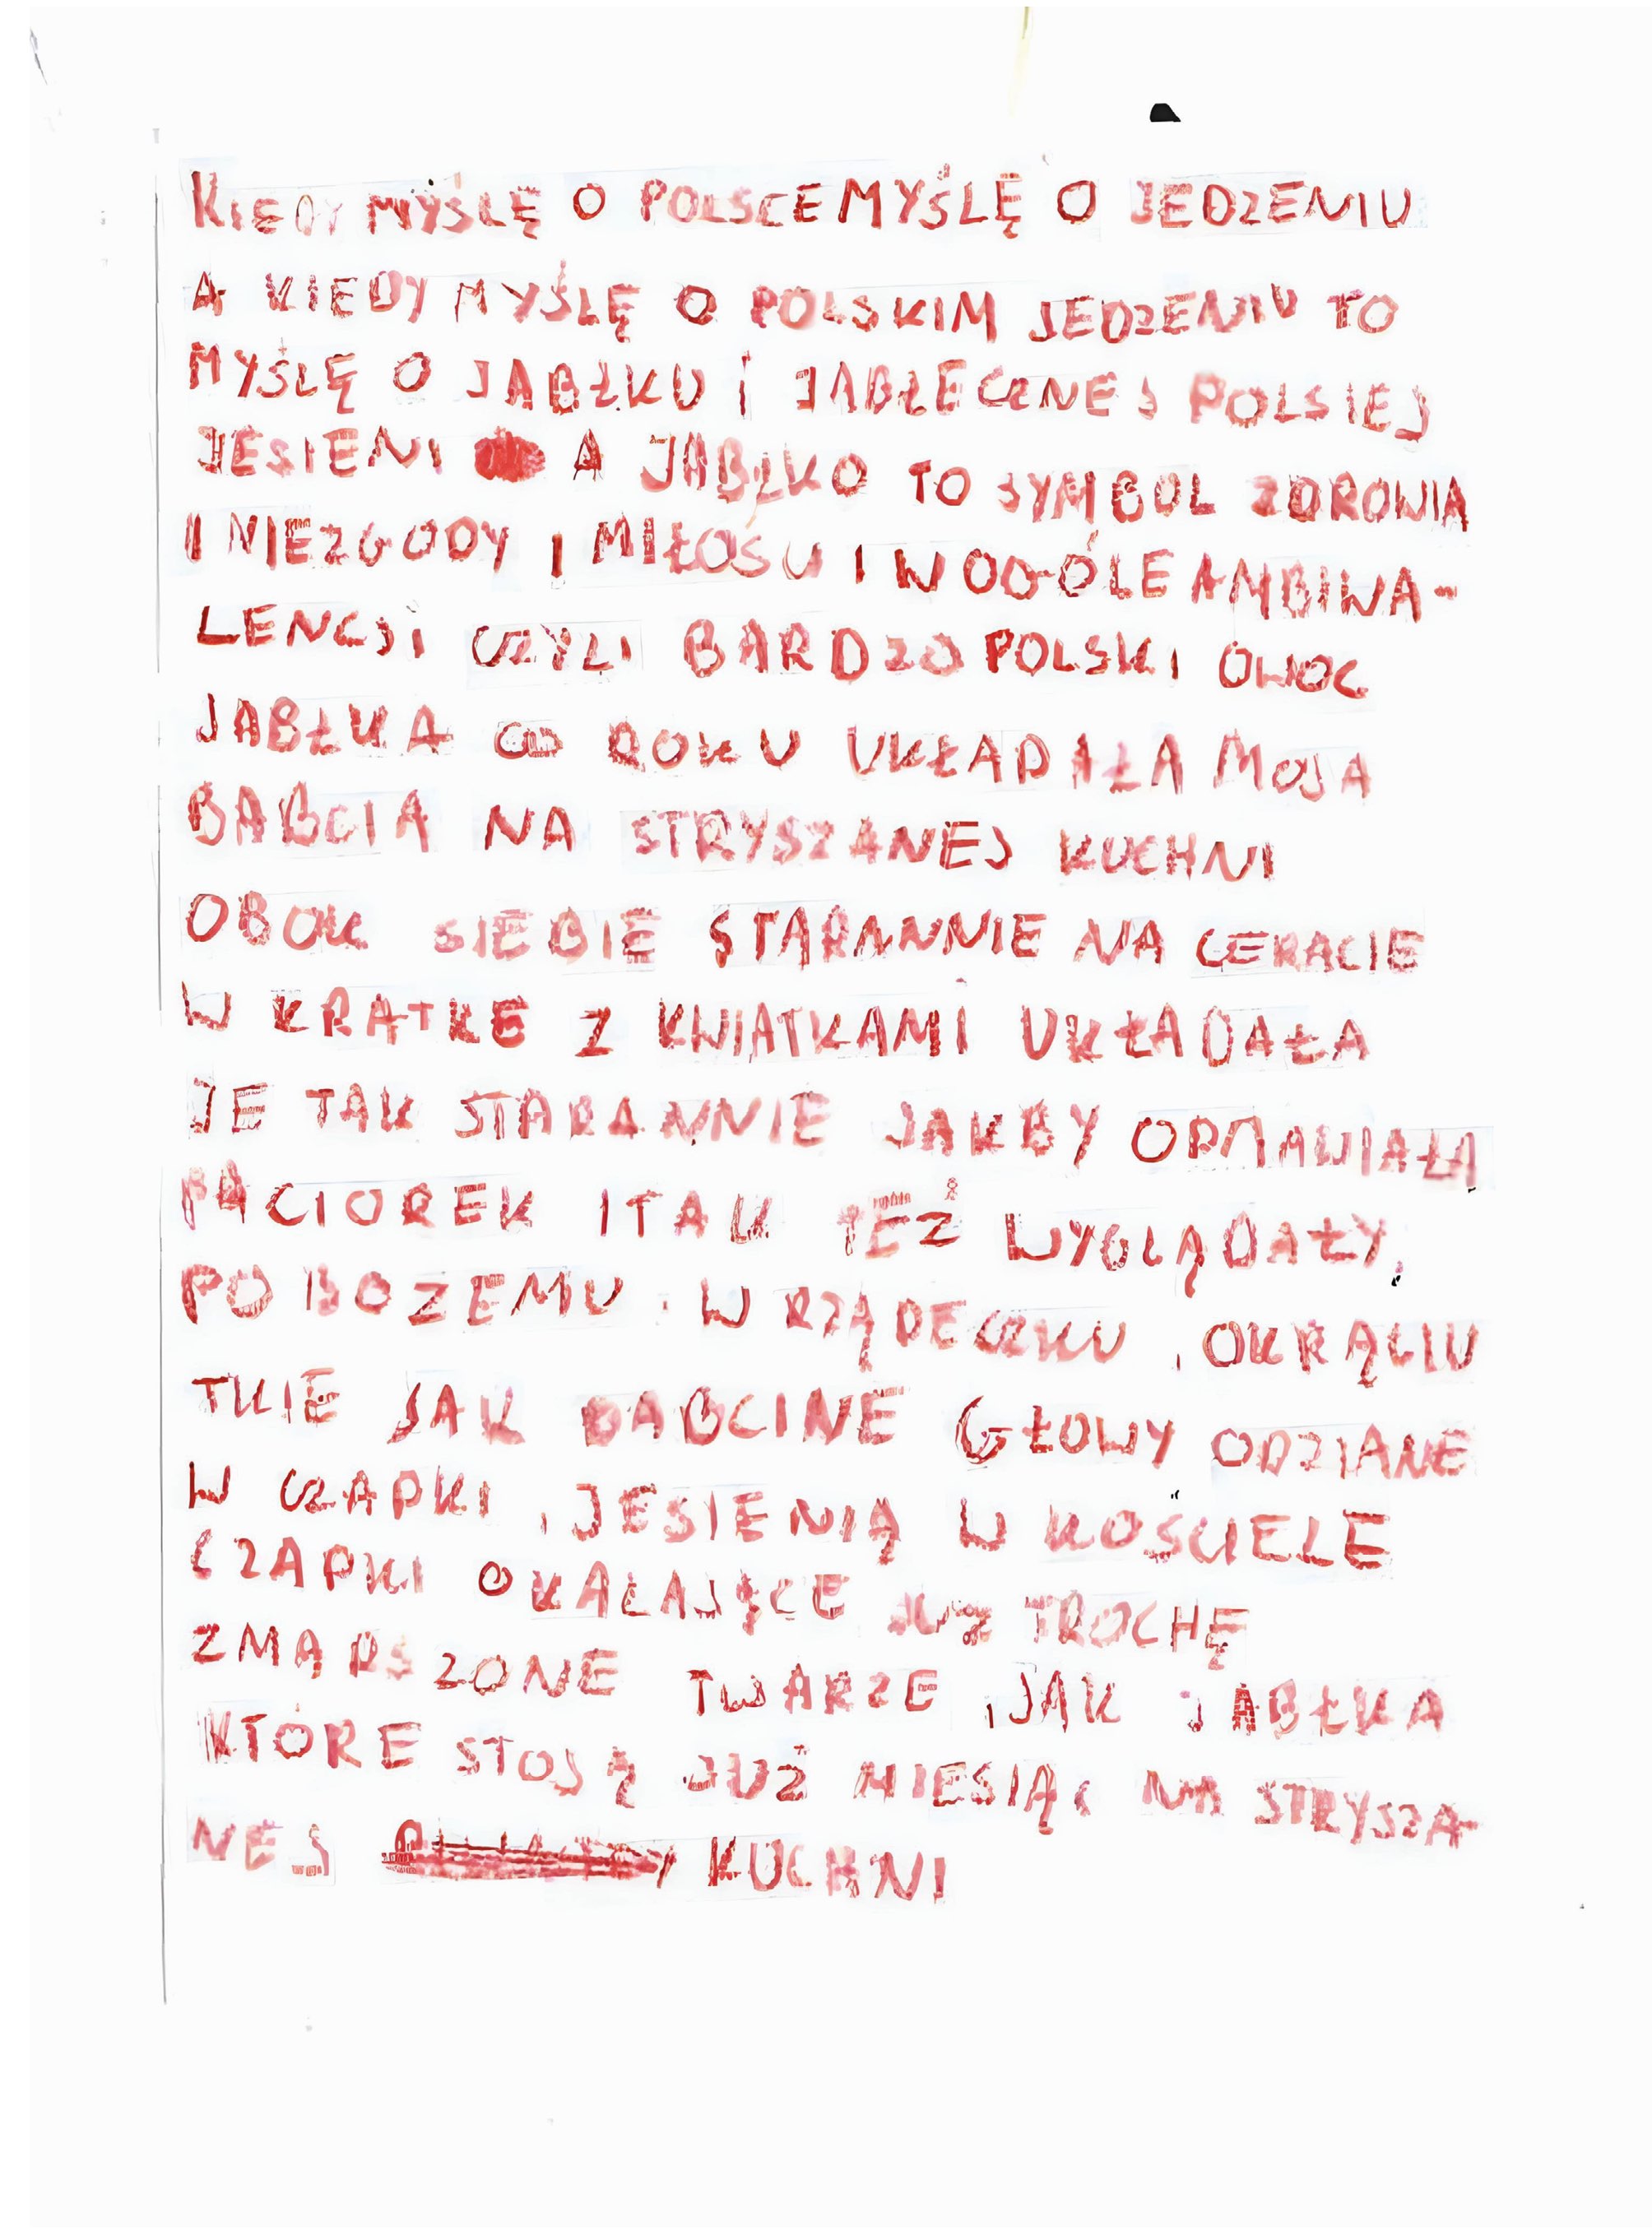 KIEDY MYŚLĘ O POLSCE MYŚLĘ O JEDZENIU
A KIEDY MYŚLĘ O POLSKIM JEDZENIU TO
MYŚLĘ O JABŁKU I JABŁECZNEJ POLSIEJ
JESIENI A JABŁKO TO SYMBOL ZDROWIA
I NIEZGODY I MIŁOŚCI I WOGÓLE AMBIWA-
LENCJI CZYLI BARDZO POLSKI OWOC
JABŁKA CO ROKU UKŁADAŁA MOJA
BABCIA NA STRYSZANEJ KUCHNI
OBOK SIEBIE STARANNIE NA CERACIE
W KRATKE Z KWIATKAMI UKŁADAŁA
JE TAK STARANNIE JAKBY ODMAWIAŁA
PACIOREK I TAK TEŻ WYGLĄDAŁY,
PO BOZEMU, W RZĄDECZKU, OKRĄCIU
TKIE JAK BABCINE GŁOWY ODZIANE
W CZAPKI, JESIENIĄ W KOŚCIELE
CZAPKI OKALAJĄCE JUŻ TROCHĘ
ZMARSZONE TWARZE, JAK JABŁKA
KTÓRE STOJĄ JUŻ MIESIĄC NA STRYSZA-
NEJ KUCHNI